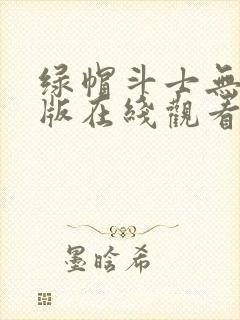 绿帽斗士無
版在綫觀看
墨晗希